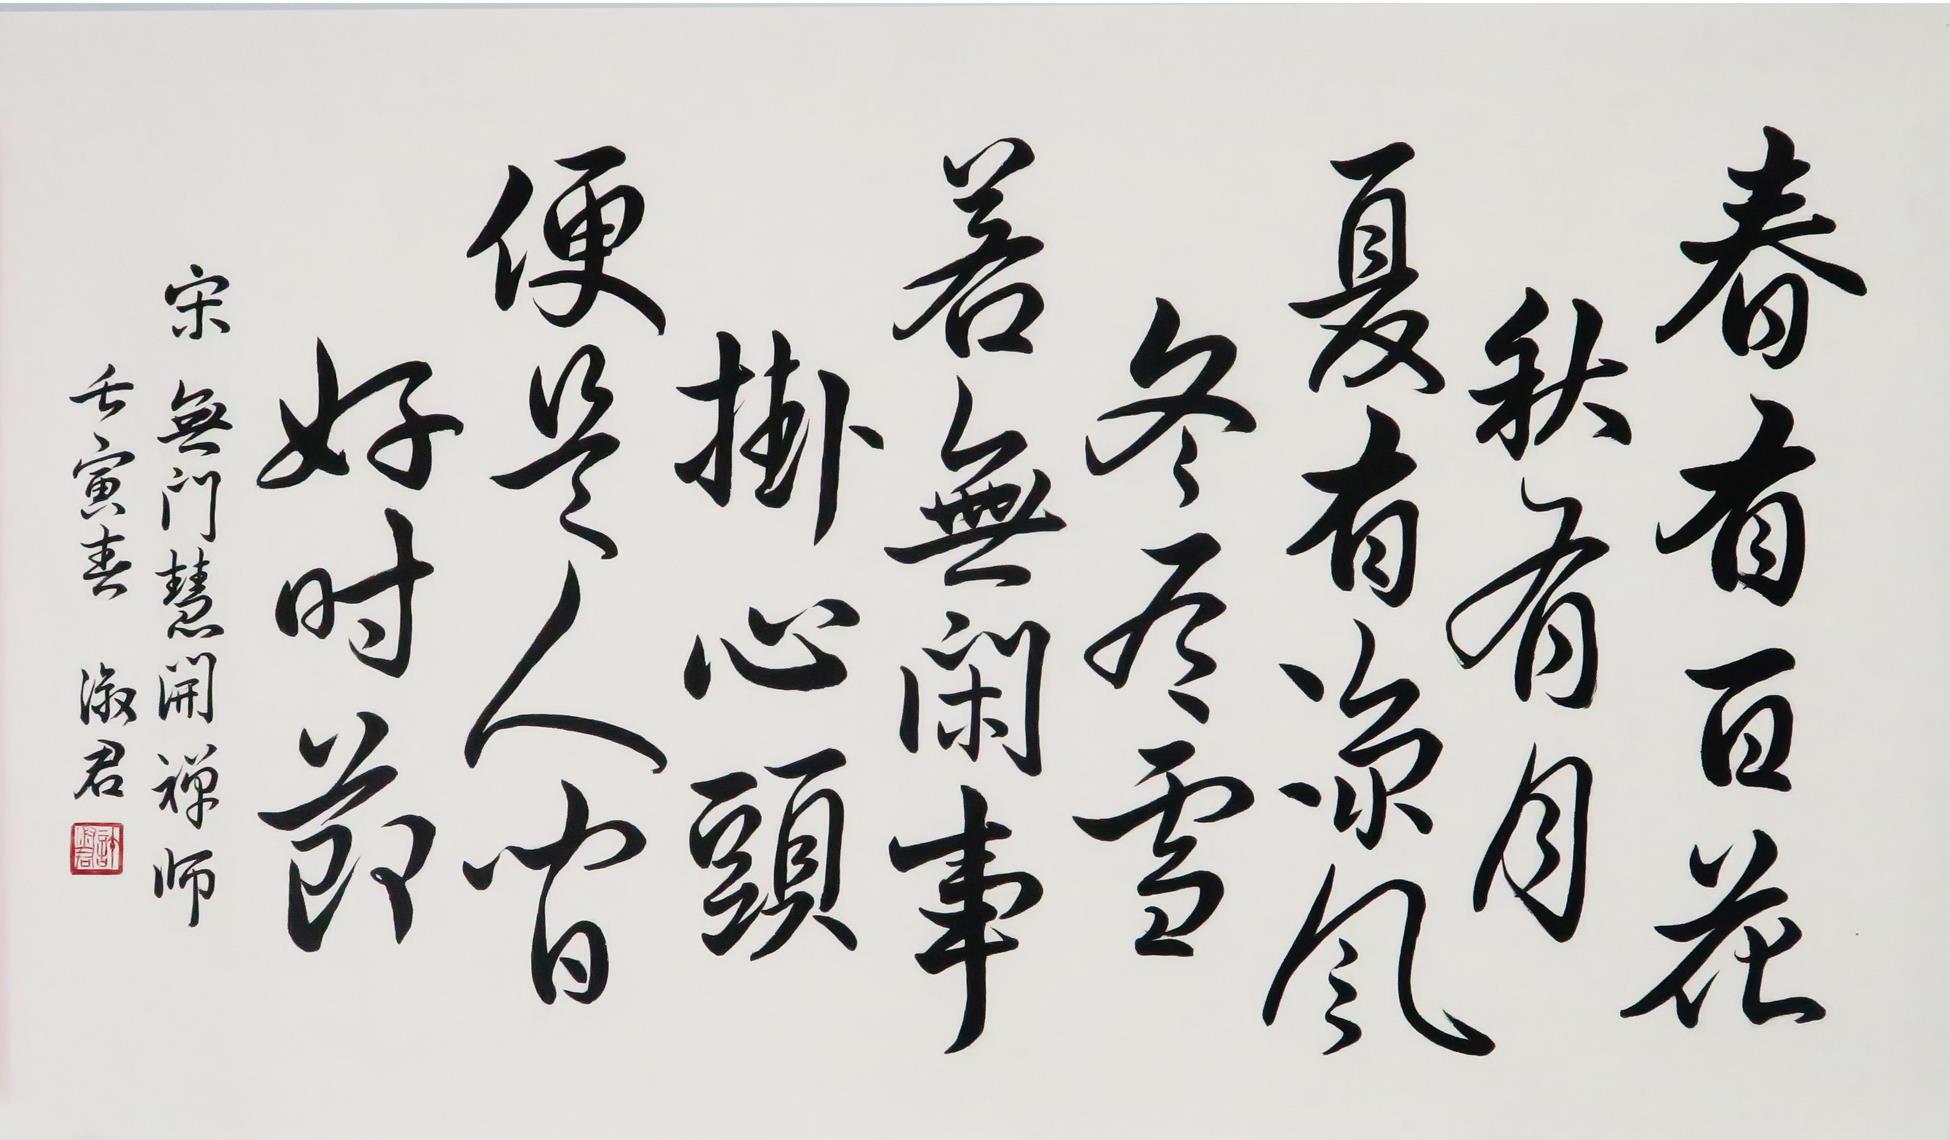 春有百花
秋有月
夏有凉风
冬有雪
若無闲事
掛心頭
便是人间
好时节
宋 無门慧開禅师
壬寅春 淑君